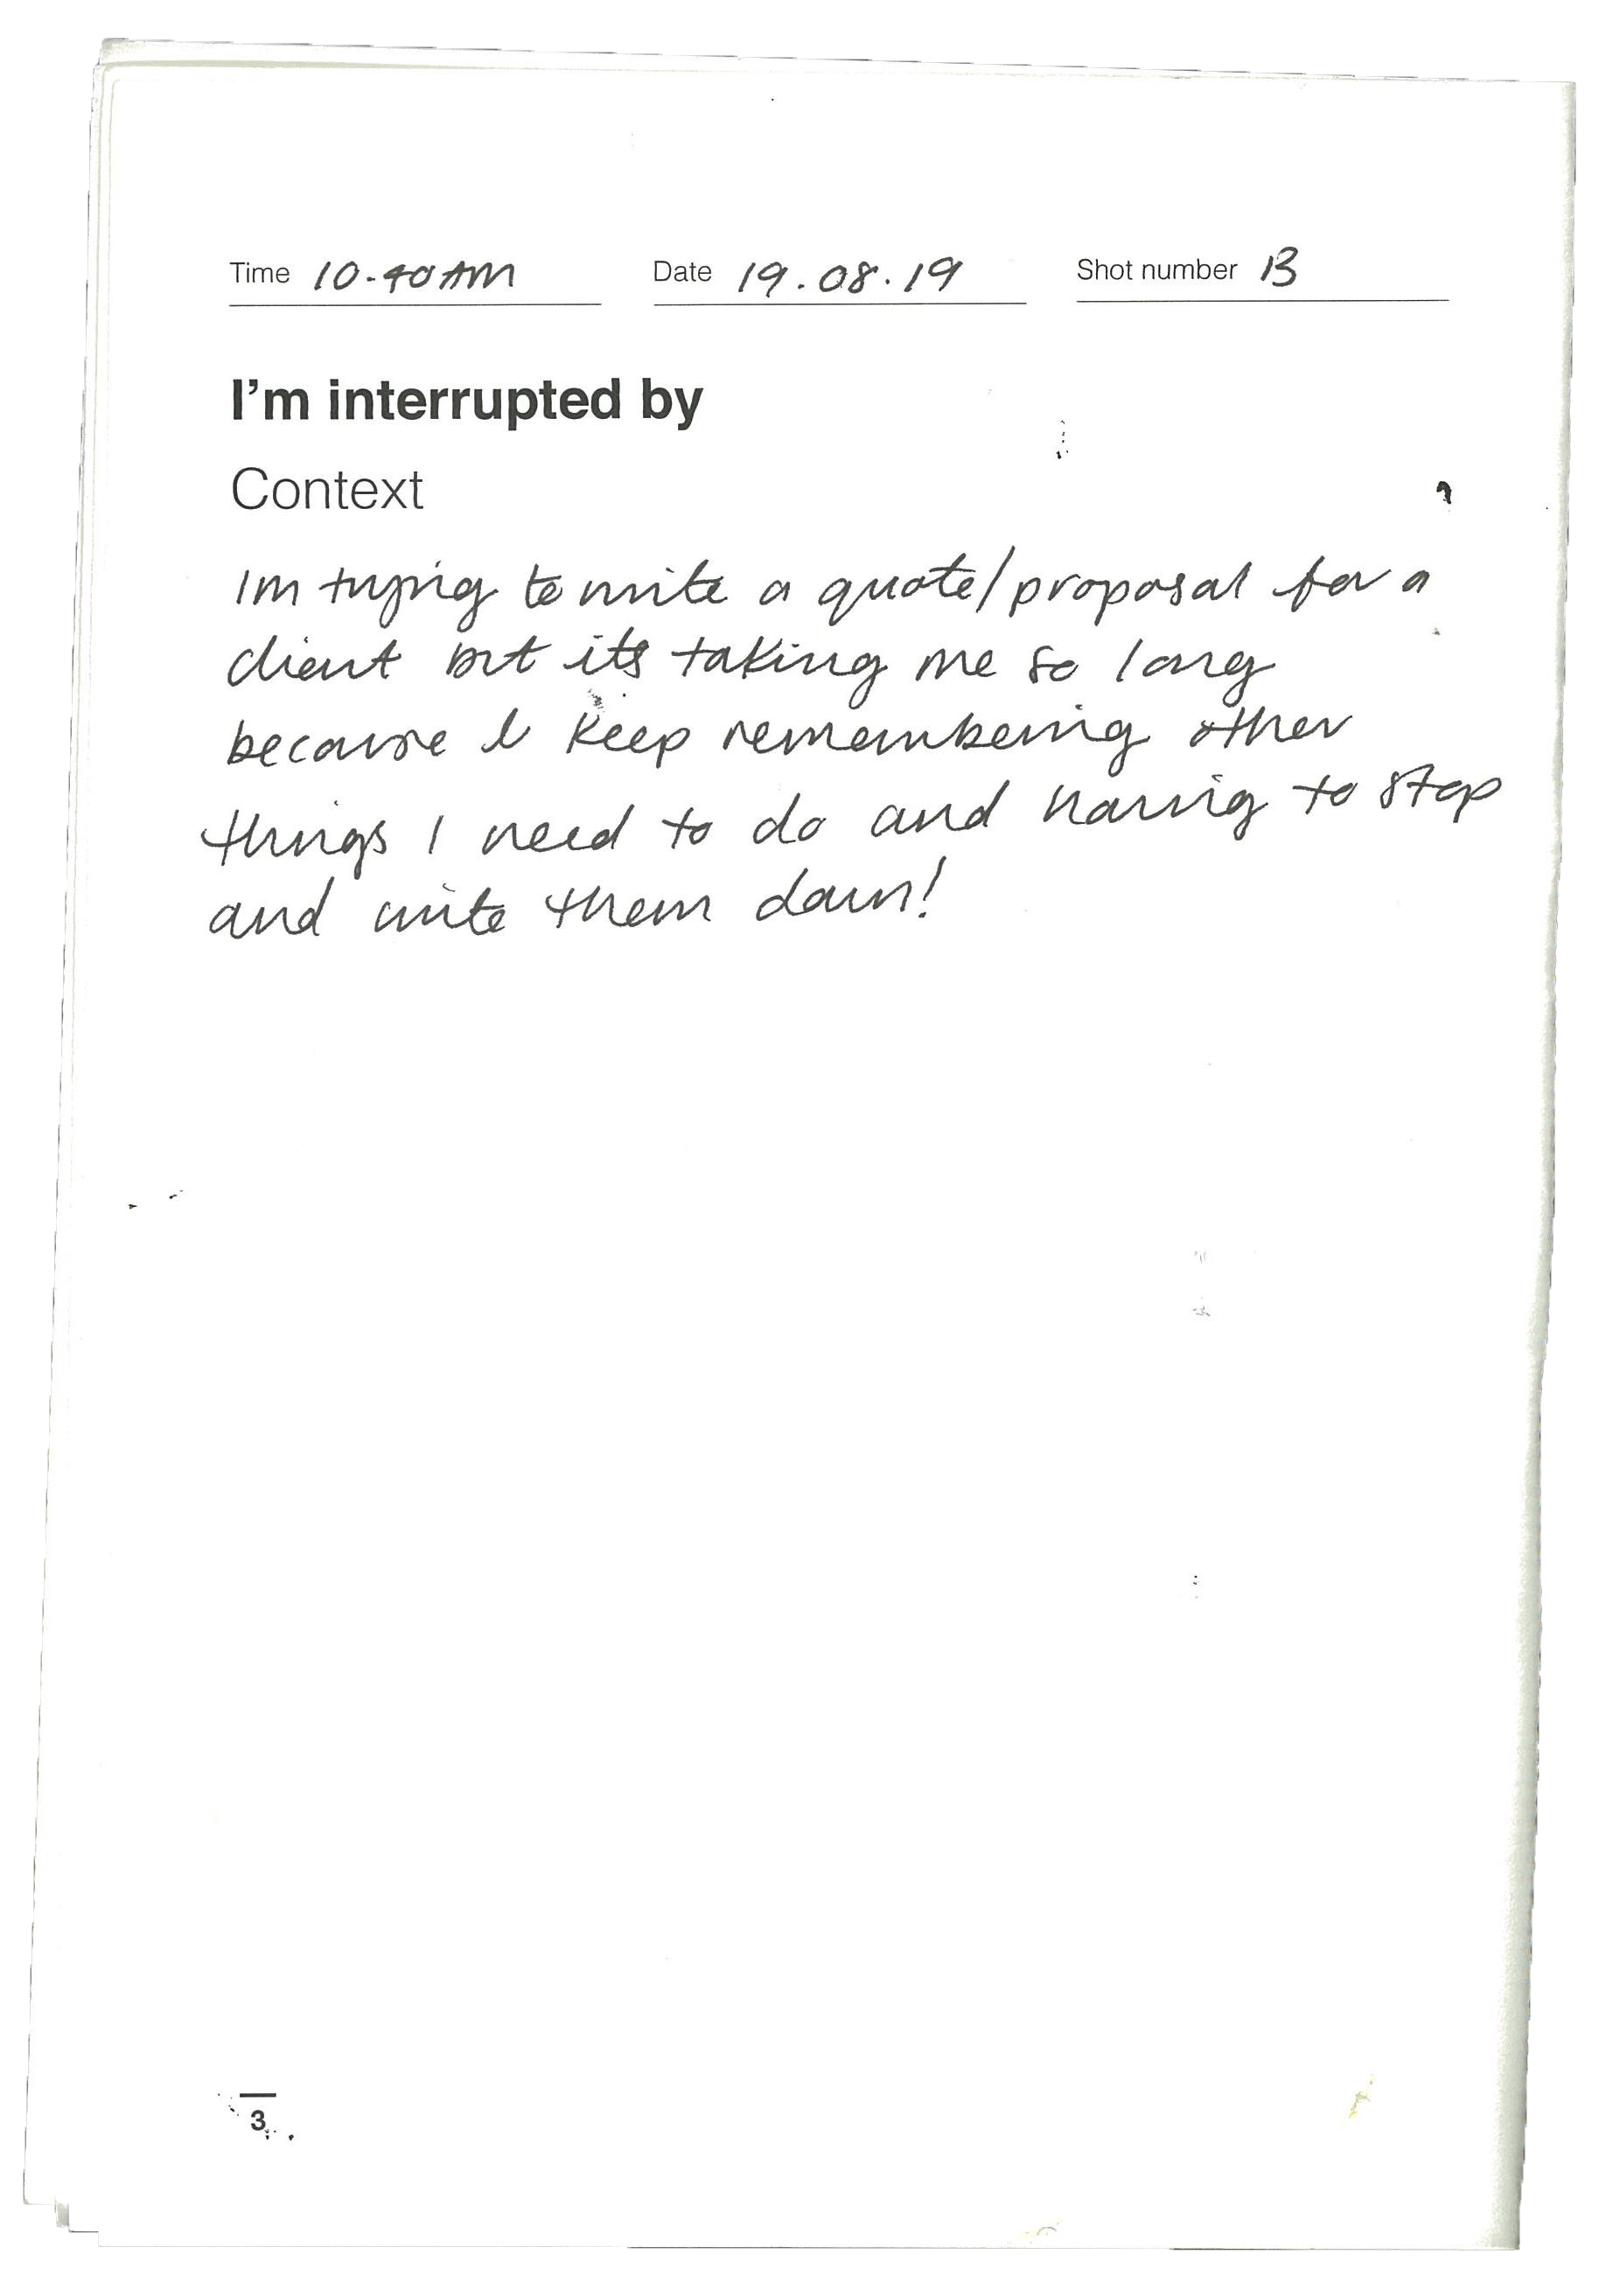 Time 10.40AM Date 19.08.19 Shot number B
I'm interrupted by
Context
Im trying to write a quote/proposal for a
client but its taking me so long
because I keep remembering other
things I need to do and having to stop
and write them down!
3